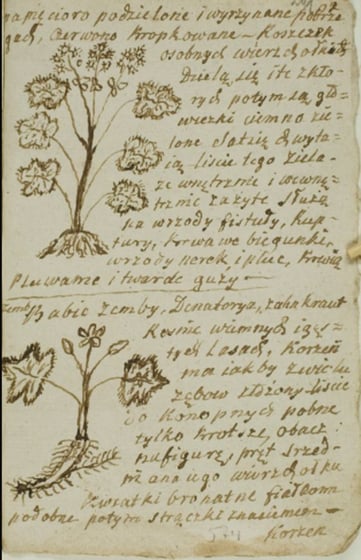 na pięcioro podzielone i wyrzynane pobrze
gach, czerwono kropkowane – Koszczek
osobnych wierzchołkach
Dzielą się ite zkto-
rych potym są głó
wieczki ciemno zie-
lone
liście tego ziela-
ze wnętrznie i wewnę-
trznie zażyte służą
na wrzody fistuły, Rup-
tury, krwawe biegunki,
wrzody nerek i płuc, krwią
Pluwanie i twarde guzy –
Babie zemby, Dentarya, zahn kraut
Rośnie wiemnych i gęs-
tych Lasach, Korzeń
ma jakby zwielu
zębow złożony liście
do Konopnych pobne
tylko krotsze, obacz
nafigurę, pręt srzed-
ni ana iego wierzchołku
Kwiatki bronatne fiałkom
podobne potym strączki znasieniem –
Korzen